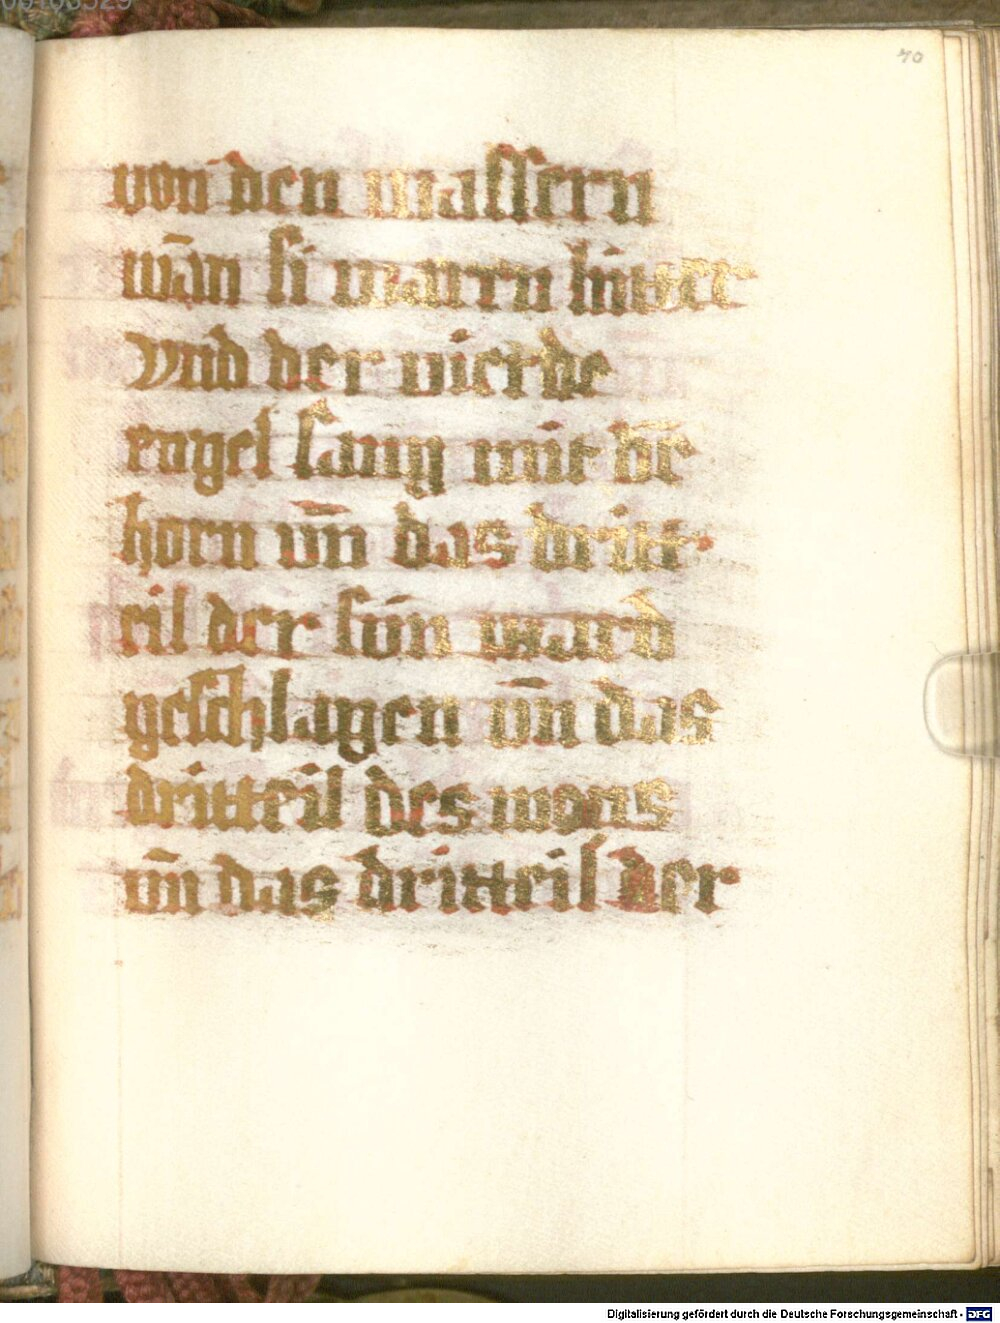 70
von den wassern
wān si waren bitter
Vnd der vierde
engel sang mit dē
horn vn̄ das dritt
eil der sun ward
geschlagen vn̄ das
dritteil des mons
vn̄ das dritteil der
Digitalisierung gefördert durch die Deutsche Forschungsgemeinschaft - DFG